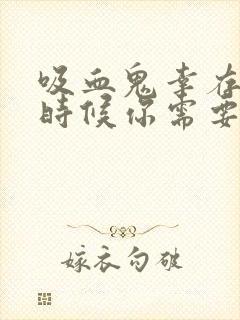 吸血鬼幸存
時候你需要
嫁衣勾破